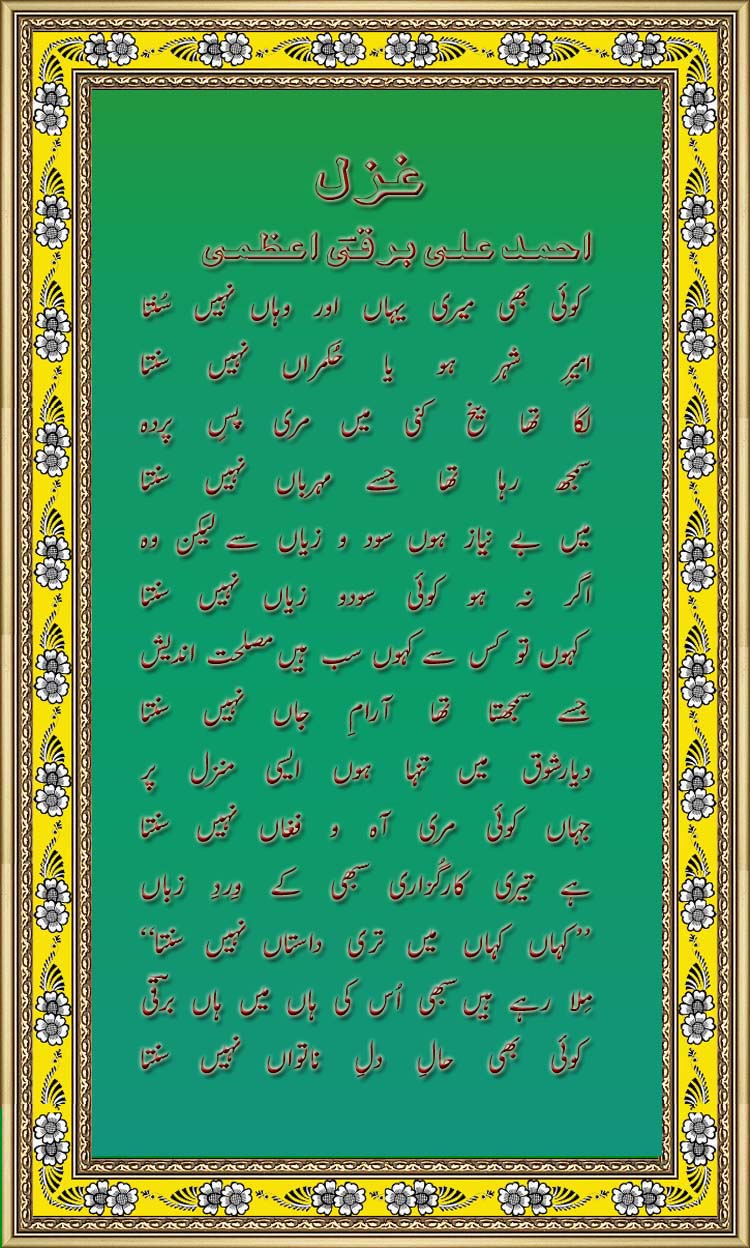 غزل
احمد علی برقیؔ اعظمی
کوئی بھی میری یہاں اور وہاں نہیں سُنتا
امیرِ شہر ہو یا حُکمراں نہیں سنتا
لگا تھا بیخ کنی میں مری پسِ پردہ
سمجھ رہا تھا جسے مہرباں نہیں سنتا
میں بے نیاز ہوں سود و زیاں سے لیکن وہ
اگر نہ ہو کوئی سودو زیاں نہیں سنتا
کہوں تو کس سے کہوں سب ہیں مصلحت اندیش
جسے سمجھتا تھا آرامِ جاں نہیں سنتا
دیارِشوق میں تنہا ہوں ایسی منزل پر
جہاں کوئی مری آہ و فغاں نہیں سنتا
ہے تیری کارگُزاری سبھی کے وِردِ زباں
”کہاں کہاں میں تری داستاں نہیں سنتا“
مِلا رہے ہیں سبھی اُس کی ہاں میں ہاں برقیؔ
کوئی بھی حالِ دلِ ناتواں نہیں سنتا